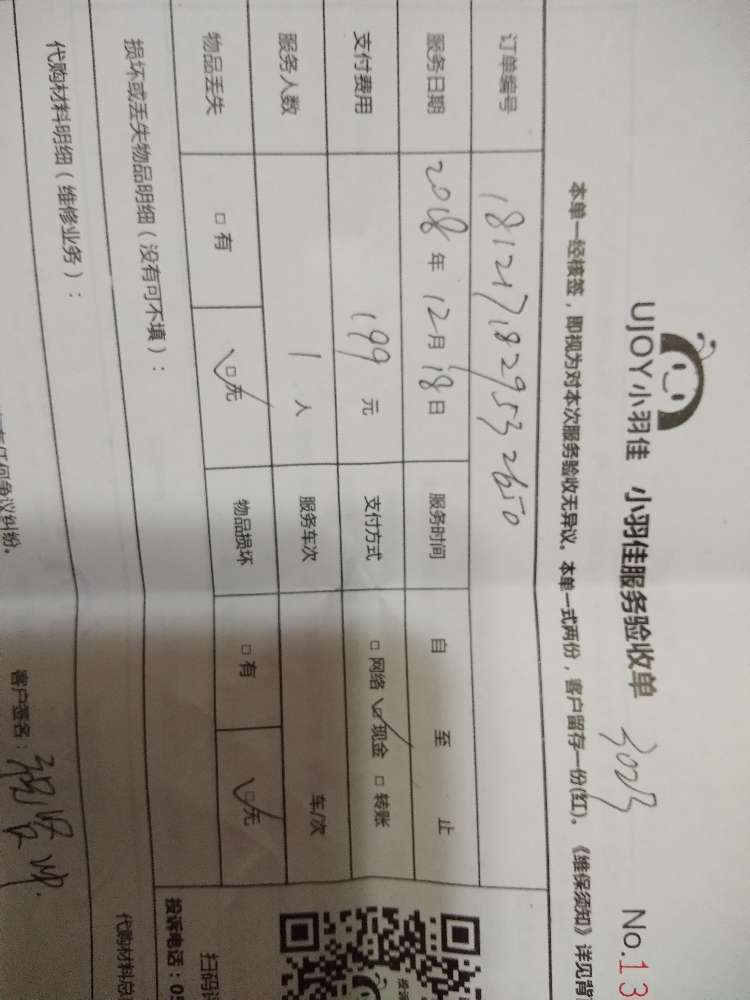 UJOY小羽佳 小羽佳服务验收单 3023 No.13
本单一经核签，即视为对本次服务验收无异议。本单一式两份，客户留存一份(红)。《维保须知》详见背
订单编号 1812171829532650
服务日期 2018年12月18日 服务时间 自 至 止
支付费用 199元 支付方式 □网络 ☑现金 □转账
服务人数 1人 服务车次 车/次
物品丢失 □有 ☑无 物品损坏 □有 ☑无
损坏或丢失物品明细（没有可不填）：
扫码
投诉电话：05
代购材料明细（维修业务）：
代购材料总
任何争议纠纷。
客户签名：